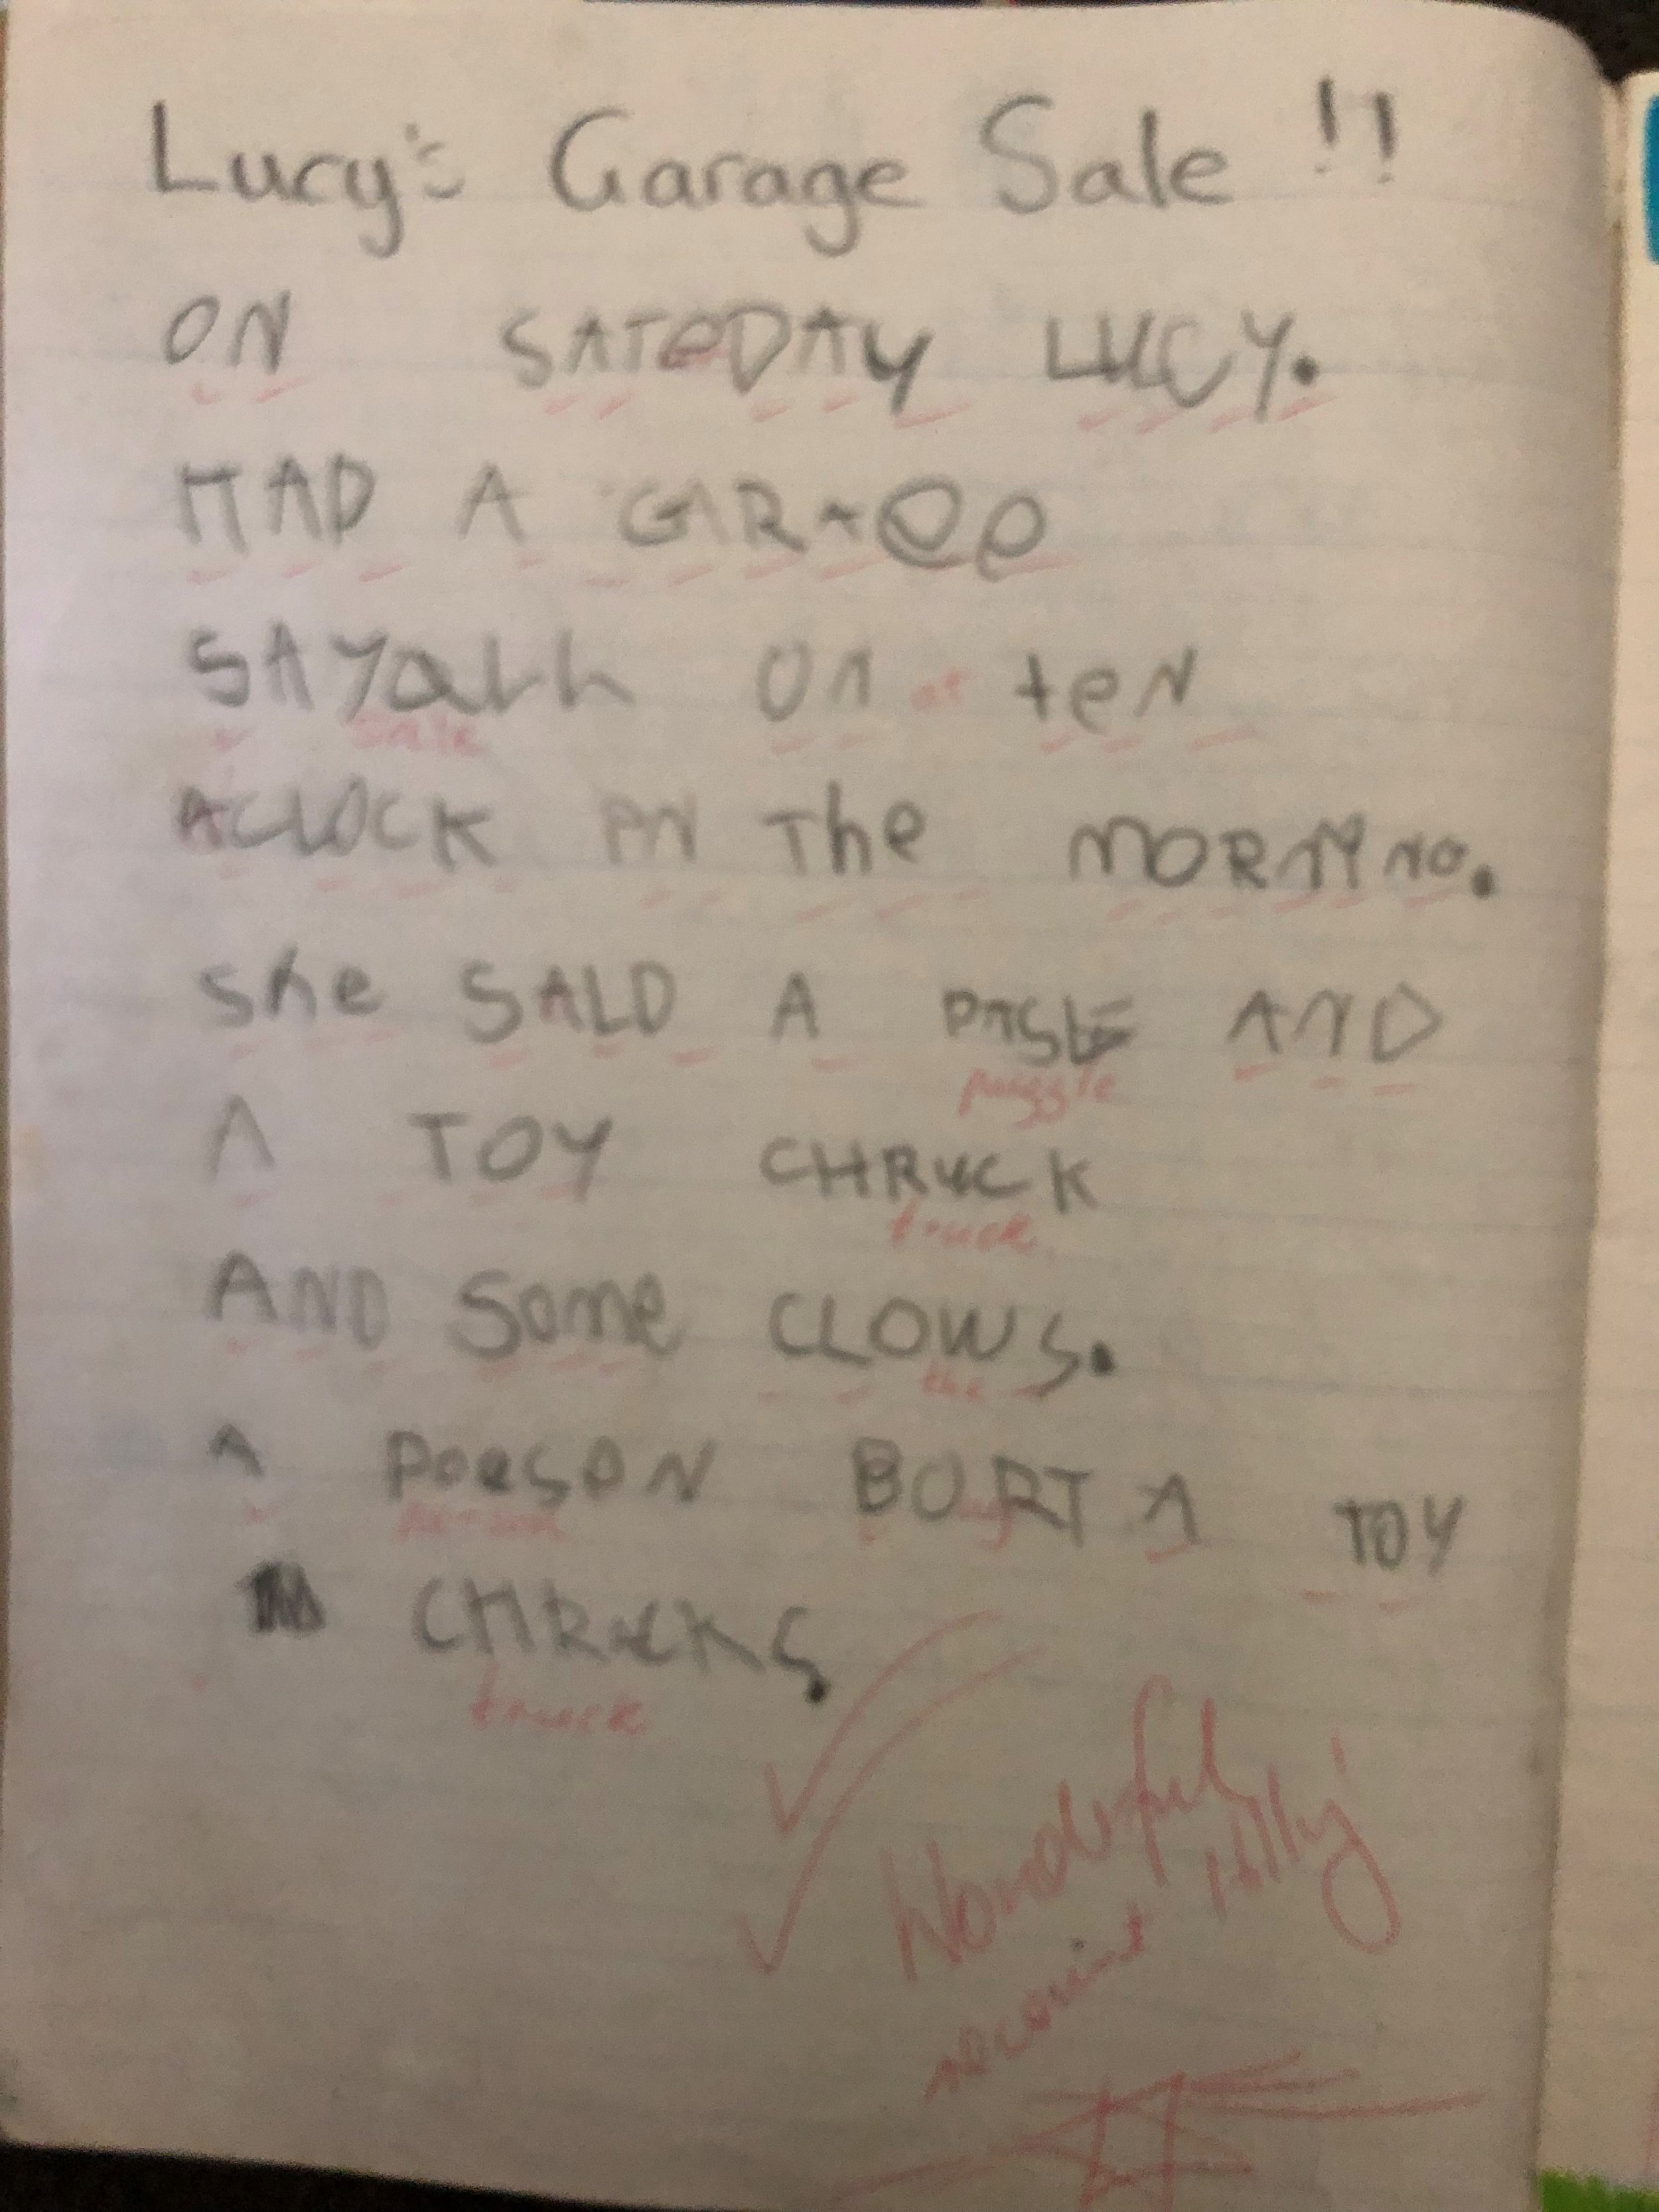 Lucy's Garage Sale !!
ON SATEDAY LUCY.
HAD A GARAGE
SAYALL ON at teN
sale
ACLOCK IN The MORNYNG.
She SALD A PASLE AND
puzzle
A TOY CHRUCK
truck
AND Some CLOWS.
the
A POESON BORT A TOY
person
CHRUCKS.
truck
Wonderful
recount Lilly